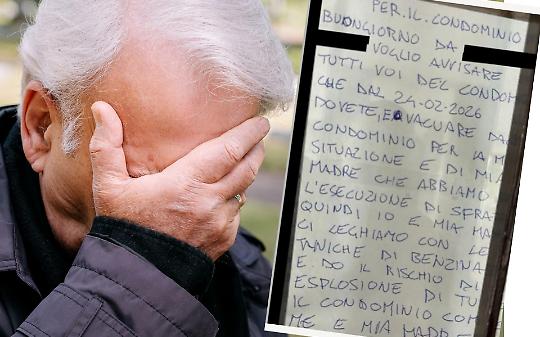 PER.IL.CONDOMINIO
BUONGIORNO DA
VOGLIO AVVISARE
TUTTI VOI DEL CONDOM
CHE DAL 24-02-2026
DOVETE, EVACUARE DA
CONDOMINIO PER LA M
SITUAZIONE E DI MIA
MADRE CHE ABBIAMO
L'ESECUZIONE DI SFRA
QUINDI IO E MIA MA
CI LEGHIAMO CON LE
TANICHE DI BENZINA
E DO IL RISCHIO DI
ESPLOSIONE DI TU
IL CONDOMINIO COM
ME E MIA MADRE